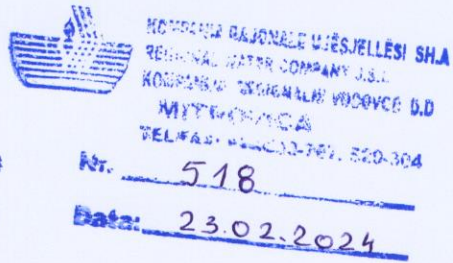 KOMPANIA RAJONALE UJËSJELLËSI SH.A
REGIONAL WATER COMPANY J.S.C
KOMPANIJA REGIONALNI VODOVOD D.D
MITROVICA
TEL/FAX: 520-304
Nr. 518
Data: 23.02.2024